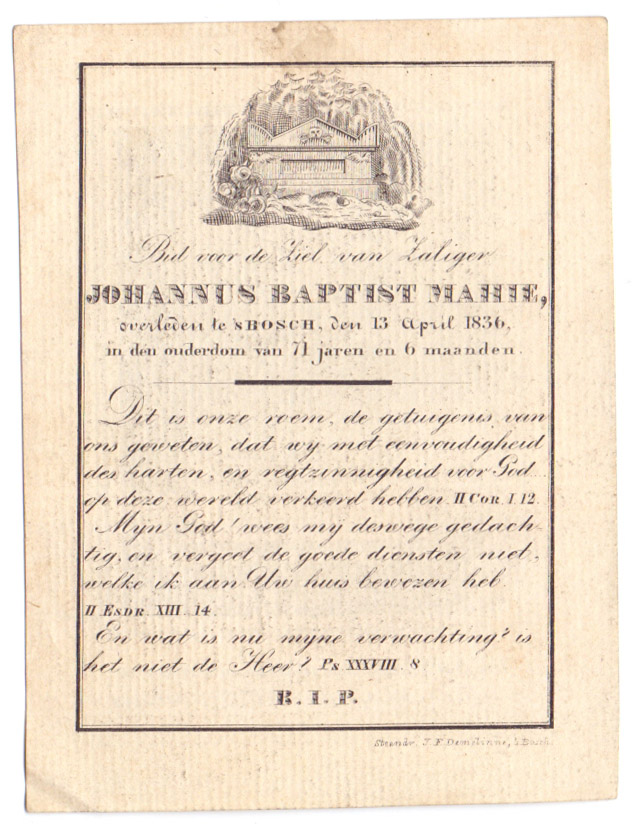 Bid voor de Ziel van Zaliger
JOHANNUS BAPTIST MAHIE,
overleden te 'SBOSCH, den 13 April 1836,
in den ouderdom van 71 jaren en 6 maanden.
Dit is onze roem, de getuigenis van
ons geweten, dat wy met eenvoudigheid
des harten, en regtzinnigheid voor God
op deze wereld verkeerd hebben. II COR. I 12.
Myn God! wees my deswege gedach-
tig, en vergeet de goede diensten niet,
welke ik aan Uw huis bewezen heb.
II ESDR. XIII. 14.
En wat is nu myne verwachting? is
het niet de Heer? Ps XXXVIII. 8
R. I. P.
Steendr. J. F. Demelinne, 's Bosch.